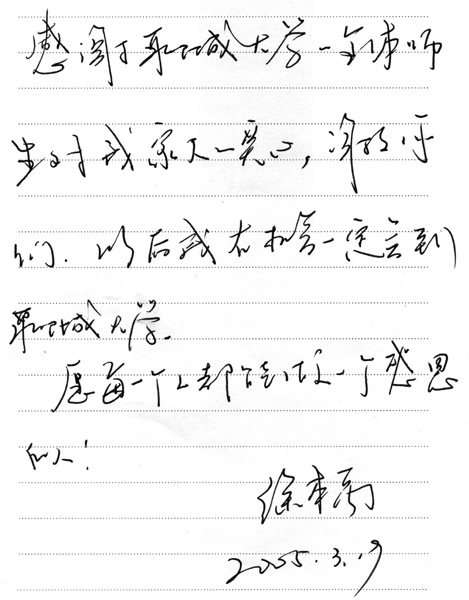 感谢聊城大学全体师
生对我家人一爱心，谢谢你
们．以后我有机会一定会到
聊城大学．
愿每一个人都能做一个感恩
的人！
徐本禹
2005.3.19